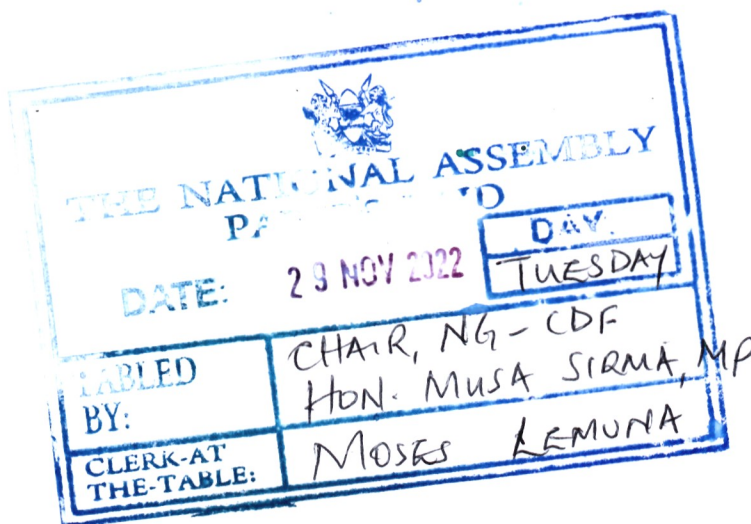 THE NATIONAL ASSEMBLY
PAPERS LAID
DATE: 29 NOV 2022
DAY.
TUESDAY
TABLED BY:
CHAIR, NG-CDF
HON. MUSA SIRMA, MP
CLERK-AT THE-TABLE:
MOSES LEMUNA